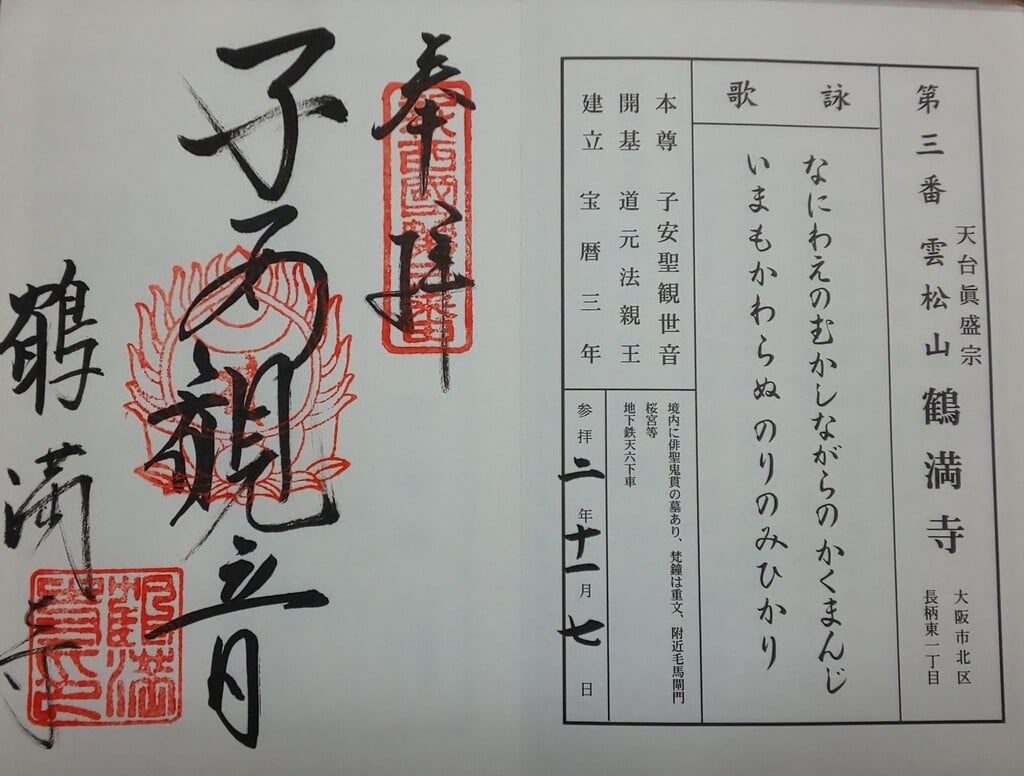 第三番 天台眞盛宗 雲松山 鶴満寺 大阪市北区 長柄東一丁目
詠歌
なにわえのむかしながらのかくまんじ
いまもかわらぬのりのみひかり
本尊 子安聖観世音
開基 道元法親王
建立 宝暦三年
境内に俳聖鬼貫の墓あり、梵鐘は重文、附近毛馬閘門
桜宮等
地下鉄天六下車
参拝二年十一月七日
奉拝
子安観音
鶴満寺